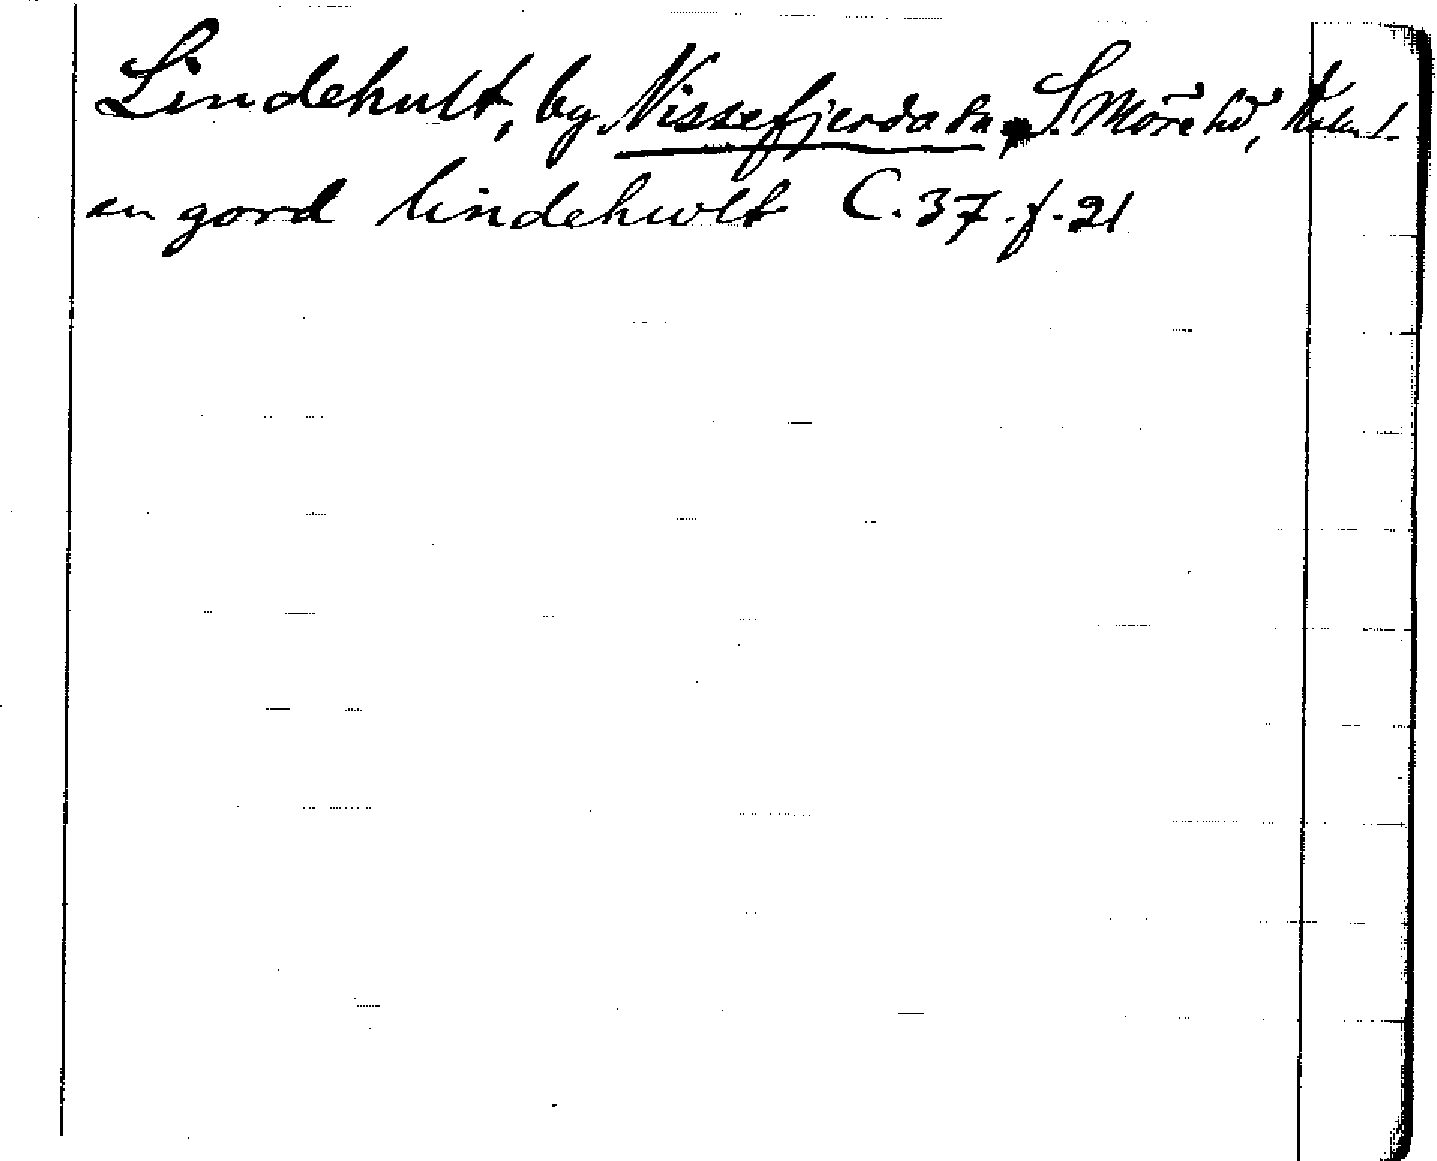 Lindehult, by Nissefjerda sn S. Möre hd, Kalm. l.
en gord lindehwlt C. 37. f. 21